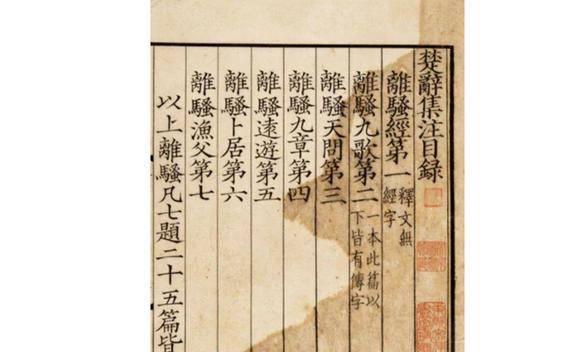 楚辭集注目録
離騷經第一釋文無經字
離騷九歌第二一本此篇以下皆有傳字
離騷天問第三
離騷九章第四
離騷遠遊第五
離騷卜居第六
離騷漁父第七
以上離騷凡七題二十五篇皆